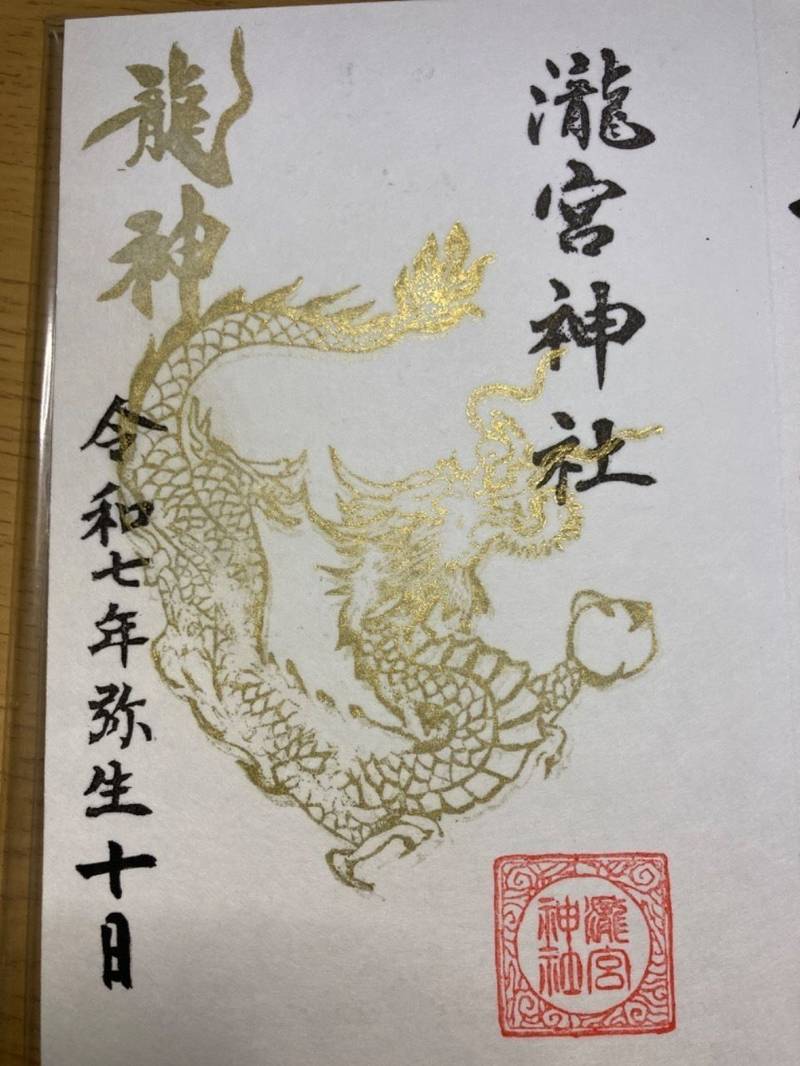 瀧宮神社
龍神
令和七年弥生十日
瀧宮
神社